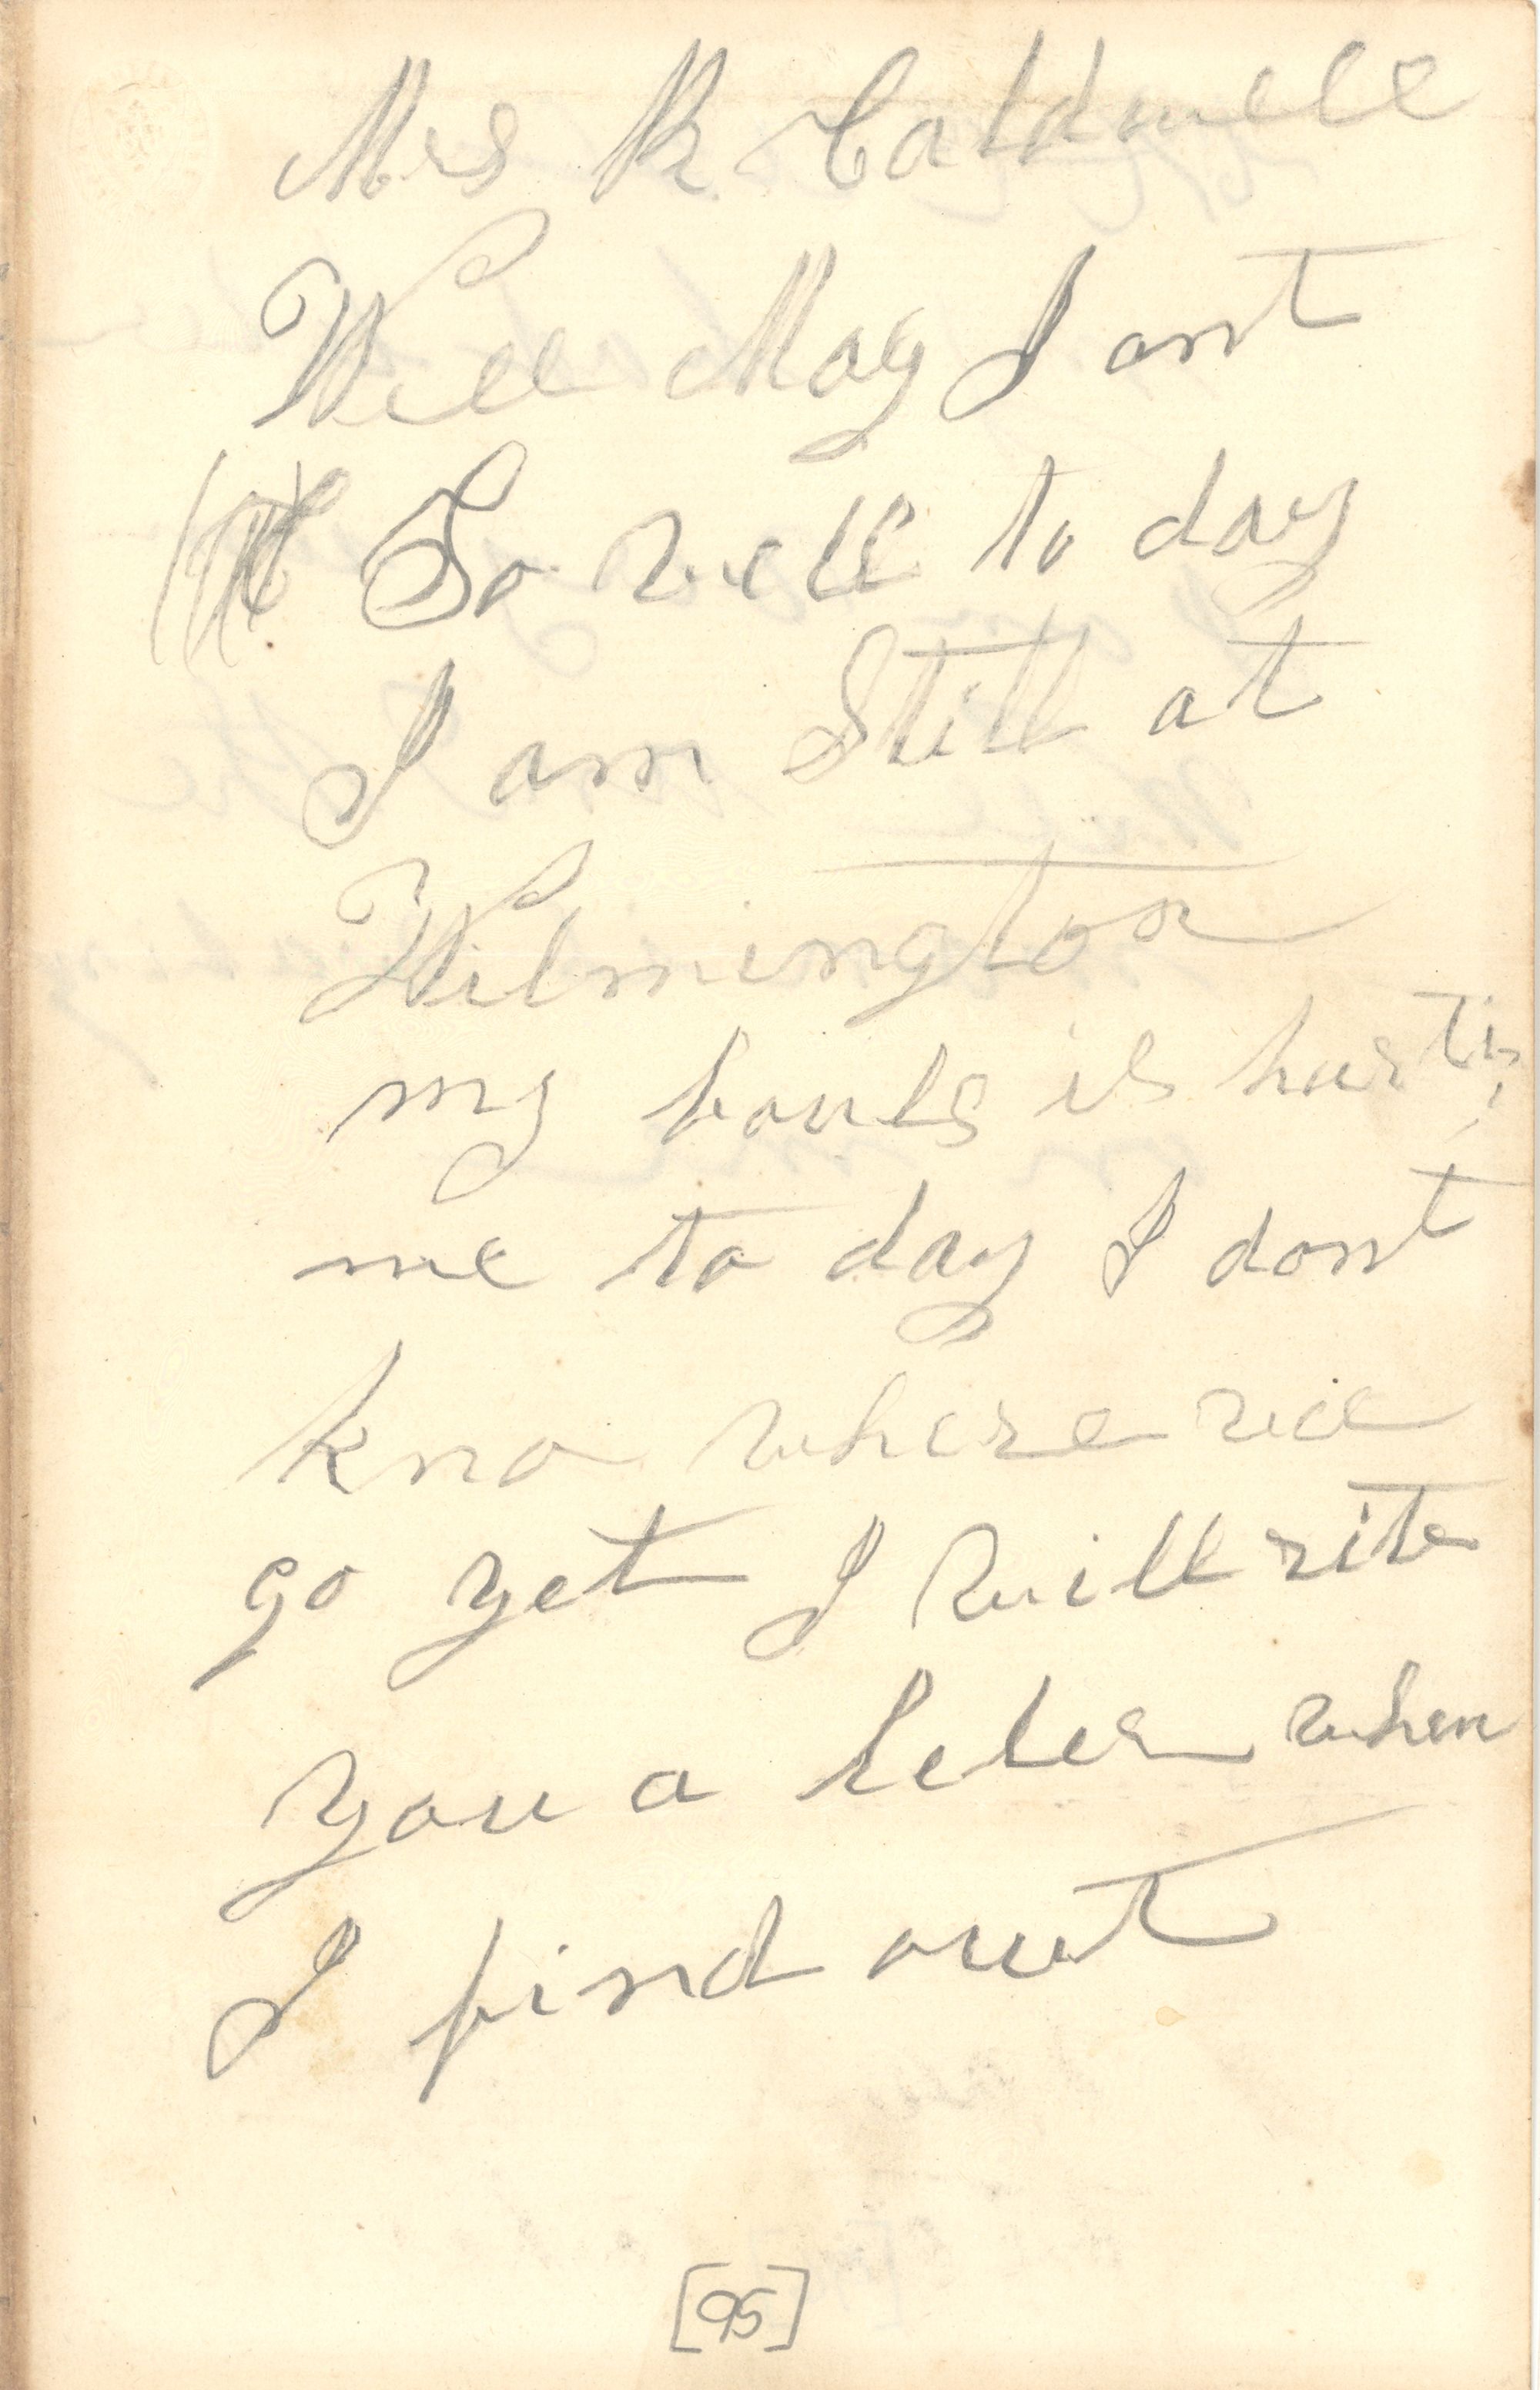 Mrs R Caldwell
Well Mag I ant
So well to day
I am Still at
Wilmington
my bouls is hurtin
me to day I dont
kno where wee
go yet I will rite
you a leter when
I find out
[95]